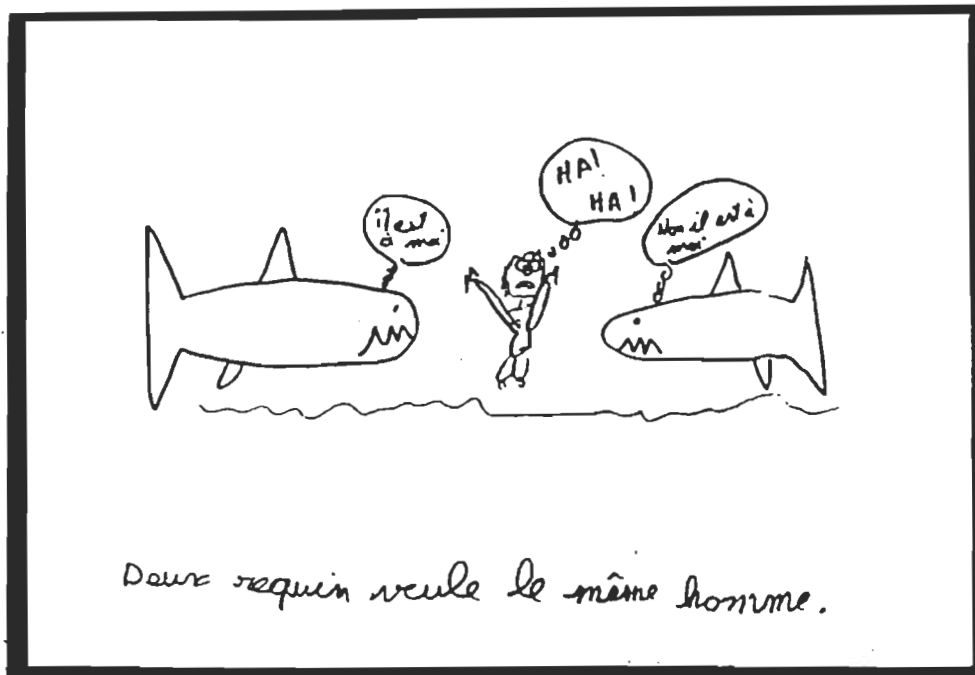 HA!
HA!
il est
à moi
Non il est à
moi
Deux requin veule le même homme.